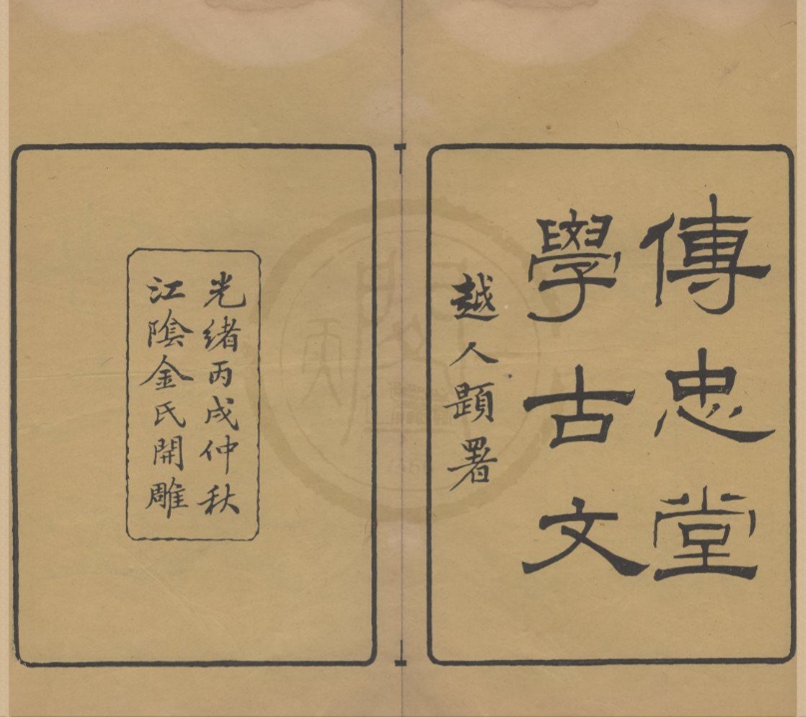 傳忠堂
學古文
越人題署
光緒丙戌仲秋
江陰金氏開雕